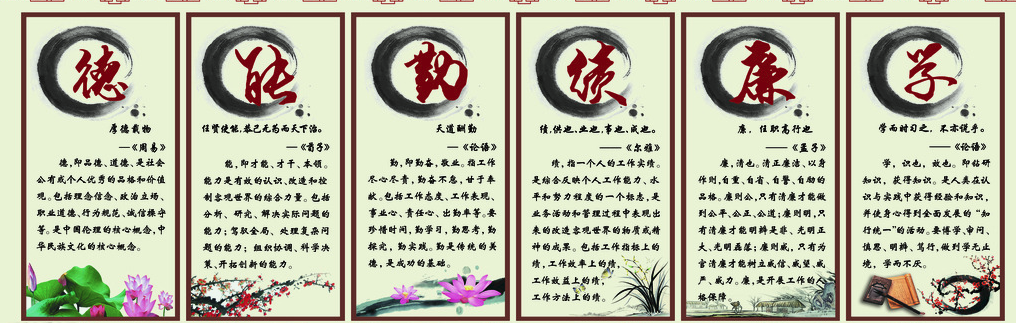 德
厚德载物
——《周易》
德,即品德、道德、是社会
公有或个人优秀的品格和价值
观。包括理念信念、政治立场、
职业道德、行为规范、诚信操守
等。是中国伦理的核心概念,中
华民族文化的核心概念。
能
任贤使能,恭己无为而天下治。
——《荀子》
能,即才能、才干、本领。
能力是有效的认识、改造和控
制客观世界的综合力量。包括
分析、研究、解决实际问题的
能力;驾驭全局、处理复杂问
题的能力;组织协调、科学决
策、开拓创新的能力。
勤
天道酬勤
——《论语》
勤,即勤奋,敬业。指工作
尽心尽责,勤奋不怠,甘于奉
献。包括工作态度、工作表现、
事业心、责任心、出勤率等。要
珍惜时间,勤学习,勤思考,勤
探究,勤实践。勤是传统的美
德,是成功的基础。
绩
绩,供也,业也,事也,成也。
——《尔雅》
绩,指一个人的工作实绩。
是综合反映个人工作能力、水
平和努力程度的一个标志,是
业务活动和管理过程中表现出
来的改造客观世界的物质或精
神的成果。包括工作指标上的
绩,工作效率上的绩,
工作效益上的绩,
工作方法上的绩。
廉
廉,任职高行也
——《孟子》
廉,清也。清正廉洁、以身
作则,自重、自省、自警、自励的
品格。廉则公,只有清廉才能做
到公平、公正、公道;廉则明,只
有清廉才能明辨是非、光明正
大、光明磊落;廉则威,只有为
官清廉才能树立威信、威望、威
严、威力。廉,是开展工作的人
格保障
学
学而时习之,不亦说乎。
——《论语》
学,识也,效也。即钻研
知识,获得知识。是人类在认
识与实践中获得经验和知识,
并使身心得到全面发展的“知
行统一”的活动。要博学、审问、
慎思、明辨、笃行,做到学无止
境,学而不厌。